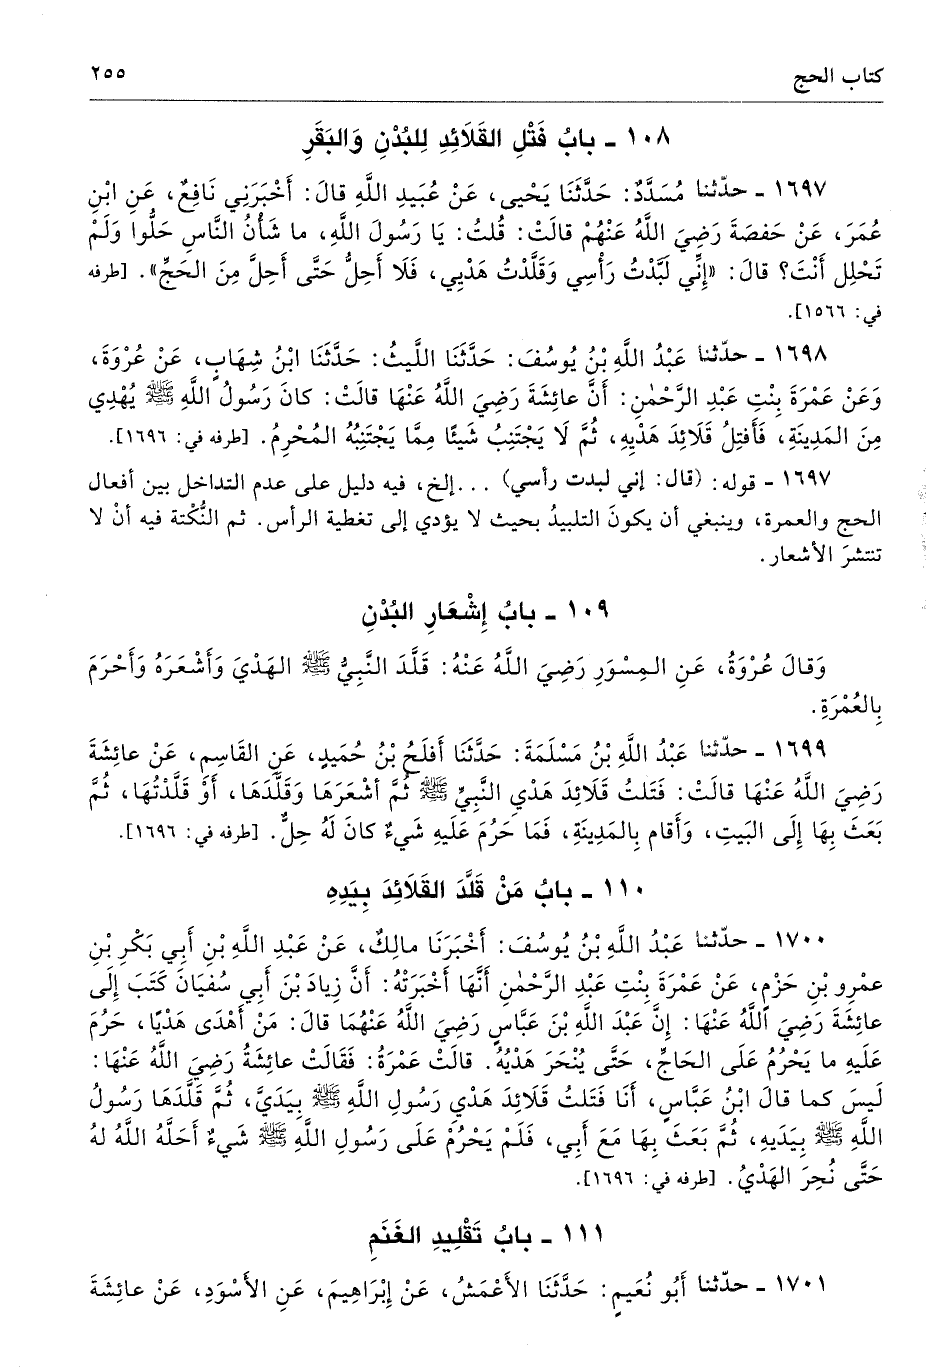 كتاب الحج
٢٥٥
١٠٨ ـ بابُ فَتْلِ القَلَائِدِ لِلبُدْنِ وَالبَقَرِ
١٦٩٧ ـ حدّثنا مُسَدَّدٌ: حَدَّثَنَا يَحْيى، عَنْ عُبَيدِ اللَّهِ قالَ: أَخْبَرَنِي نَافِعٌ، عَنِ ابْنِ
عُمَرَ، عَنْ حَفصَةَ رَضِيَ اللَّهُ عَنْهُمْ قالَتْ: قُلتُ: يَا رَسُولَ اللَّهِ، ما شَأْنُ النَّاسِ حَلُّوا وَلَمْ
تَحْلِل أَنْتَ؟ قالَ: «إِنِّي لَبَّدْتُ رَأْسِي وَقَلَّدْتُ هَدْيِي، فَلَا أَحِلُّ حَتَّى أَحِلَّ مِنَ الحَجِّ». [طرفه
في: ١٥٦٦].
١٦٩٨ ـ حدّثنا عَبْدُ اللَّهِ بْنُ يُوسُفَ: حَدَّثَنَا اللَّيثُ: حَدَّثَنَا ابْنُ شِهَابٍ، عَنْ عُرْوَةَ،
وَعَنْ عَمْرَةَ بِنْتِ عَبْدِ الرَّحْمٰنِ: أَنَّ عائِشَةَ رَضِيَ اللَّهُ عَنْهَا قالَتْ: كانَ رَسُولُ اللَّهِ ﷺ يُهْدِي
مِنَ المَدِينَةِ، فَأَفتِلُ قَلَائِدَ هَدْيِهِ، ثُمَّ لَا يَجْتَنِبُ شَيئًا مِمَّا يَجْتَنِبُهُ المُحْرِمُ. [طرفه في: ١٦٩٦].
١٦٩٧ ـ قوله: (قال: إني لبدت رأسي) ...إلخ، فيه دليل على عدم التداخل بين أفعال
الحج والعمرة، وينبغي أن يكونَ التلبيدُ بحيث لا يؤدي إلى تغطية الرأس. ثم النُّكتة فيه أنْ لا
تنتشرَ الأشعار.
١٠٩ ـ بابُ إِشْعَارِ البُدْنِ
وَقالَ عُرْوَةُ، عَنِ المِسْوَرِ رَضِيَ اللَّهُ عَنْهُ: قَلَّدَ النَّبِيُّ ﷺ الهَدْيَ وَأَشْعَرَهُ وَأَحْرَمَ
بِالعُمْرَةِ.
١٦٩٩ ـ حدّثنا عَبْدُ اللَّهِ بْنُ مَسْلَمَةَ: حَدَّثَنَا أَفلَحُ بْنُ حُمَيدٍ، عَنِ القَاسِمِ، عَنْ عائِشَةَ
رَضِيَ اللَّهُ عَنْهَا قالَتْ: فَتَلتُ قَلَائِدَ هَدْيِ النَّبِيِّ ﷺ ثُمَّ أَشْعَرَهَا وَقَلَّدَهَا، أَوْ قَلَّدْتُهَا، ثُمَّ
بَعَثَ بِهَا إِلَى البَيتِ، وَأَقام بِالمَدِينَةِ، فَمَا حَرُمَ عَلَيهِ شَيءٌ كانَ لَهُ حِلٌّ. [طرفه في: ١٦٩٦].
١١٠ ـ بابُ مَنْ قَلَّدَ القَلَائِدَ بِيَدِهِ
١٧٠٠ ـ حدّثنا عَبْدُ اللَّهِ بْنُ يُوسُفَ: أَخْبَرَنَا مالِكٌ، عَنْ عَبْدِ اللَّهِ بْنِ أَبِي بَكْرِ بْنِ
عمْرِو بْنِ حَزْمٍ، عَنْ عَمْرَةَ بِنْتِ عَبْدِ الرَّحْمٰنِ أَنَّهَا أَخْبَرَتْهُ: أَنَّ زِيادَ بْنَ أَبِي سُفيَانَ كَتَبَ إِلَى
عائِشَةَ رَضِيَ اللَّهُ عَنْهَا: إِنَّ عَبْدَ اللَّهِ بْنَ عَبَّاسٍ رَضِيَ اللَّهُ عَنْهُمَا قالَ: مَنْ أَهْدَى هَدْيًا، حَرُمَ
عَلَيهِ ما يَحْرُمُ عَلَى الحَاجِّ، حَتَّى يُنْحَرَ هَدْيُهُ. قالَتْ عَمْرَةُ: فَقَالَتْ عائِشَةُ رَضِيَ اللَّهُ عَنْهَا:
لَيسَ كما قالَ ابْنُ عَبَّاسٍ، أَنَا فَتَلتُ قَلَائِدَ هَدْيِ رَسُولِ اللَّهِ ﷺ بِيَدَيَّ، ثُمَّ قَلَّدَهَا رَسُولُ
اللَّهِ ﷺ بِيَدَيهِ، ثُمَّ بَعَثَ بِهَا مَعَ أَبِي، فَلَمْ يَحْرُمْ عَلَى رَسُولِ اللَّهِ ﷺ شَيءٌ أَحَلَّهُ اللَّهُ لهُ
حَتَّى نُحِرَ الهَدْيُ. [طرفه في: ١٦٩٦].
١١١ ـ بابُ تَقْلِيدِ الغَنَمِ
١٧٠١ ـ حدّثنا أَبُو نُعَيمٍ: حَدَّثَنَا الأَعْمَشُ، عَنْ إِبْرَاهِيمَ، عَنِ الأَسْوَدِ، عَنْ عائِشَةَ